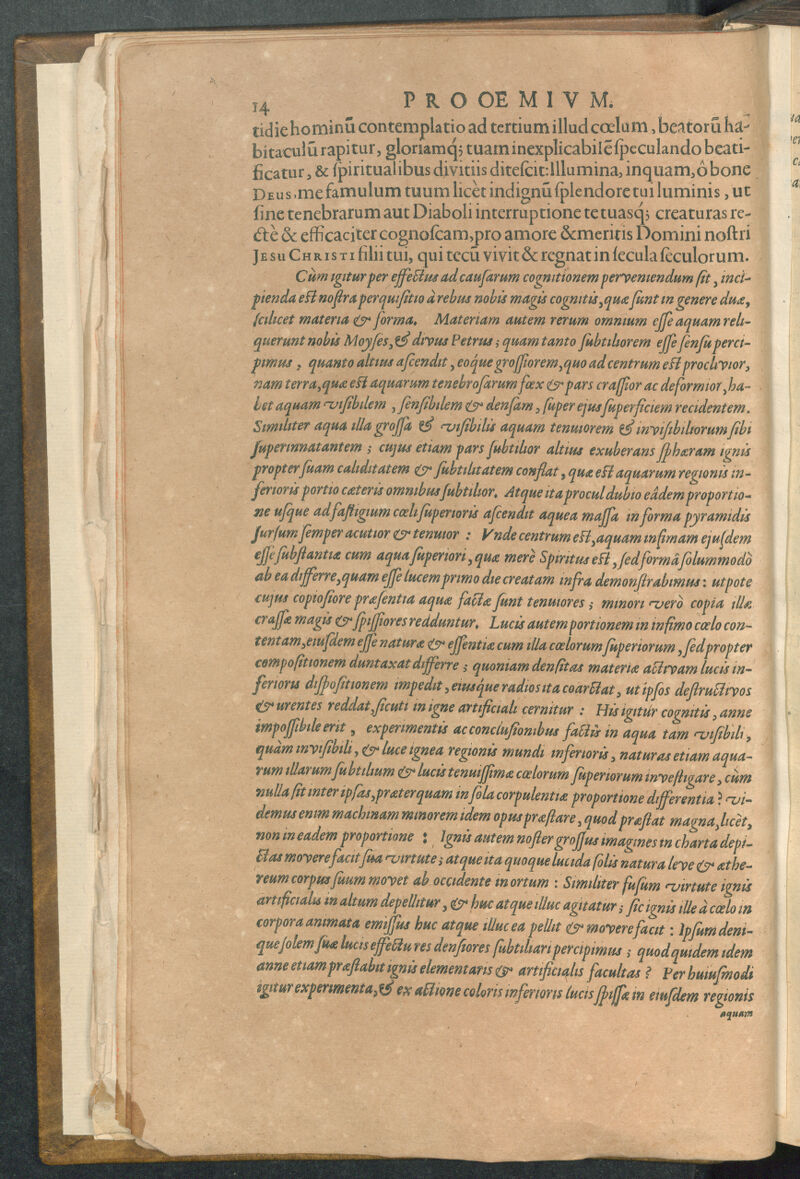 14 PROOEMIVM.
tidie hominũ contemplatio ad tertium illud cœlum, beatorũ ha-
bitaculũ rapitur, gloriamq; tuam inexplicabilẽ ſpeculando beati-
ficatur, & ſpiritualibus divitiis diteſcit: Illumina, inquam, ô bone
DEUS, me famulum tuum licèt indignũ ſplendore tui luminis, ut
ſine tenebrarum aut Diaboli interruptione te tuasq; creaturas re-
ctè & efficaciter cognoſcam, pro amore & meritis Domini noſtri
JESU CHRISTI filii tui, qui tecũ vivit & regnat in ſecula ſeculorum.
Cùm igitur per effectus ad cauſarum cognitionem perveniendum ſit, inci-
pienda eſt noſtra perquiſitio à rebus nobis magis cognitis, quæ ſunt in genere duæ,
ſcilicet materia & forma. Materiam autem rerum omnium eſſe aquam reli-
querunt nobis Moyſes, & divus Petrus; quam tanto ſubtiliorem eſſe ſenſu perci-
pimus, quanto altius aſcendit, eoque groſſiorem, quo ad centrum eſt proclivior,
nam terra, quæ eſt aquarum tenebroſarum fæx & pars craſſior ac deformior, ha-
bet aquam viſibilem, ſenſibilem & denſam, ſuper ejus ſuperficiem recidentem.
Similiter aqua illa groſſa & viſibilis aquam tenuiorem & inviſibiliorum ſibi
ſuperinnatantem; cujus etiam pars ſubtilior altius exuberans ſphæram ignis
propter ſuam caliditatem & ſubtilitatem conflat, quæ eſt aquarum regionis in-
ferioris portio cæteris omnibus ſubtilior. Atque ita procul dubio eâdem proportio-
ne uſque ad faſtigium cœli ſuperioris aſcendit aquea maſſa in forma pyramidis
ſurſum ſemper acutior & tenuior : Unde centrum eſt, aquam infimam ejuſdem
eſſe ſubſtantiæ cum aqua ſuperiori, quæ merè Spiritus eſt, ſed formâ ſolummodò
ab ea differre, quam eſſe lucem primo die creatam infra demonſtrabimus: utpote
cujus copioſiore præſentia aquæ factæ ſunt tenuiores; minori verò copia illæ
craſſæ magis & ſpiſſiores redduntur. Lucis autem portionem in infimo cœlo con-
tentam, eiuſdem eſſe naturæ & eſſentiæ cum illa cœlorum ſuperiorum, ſed propter
compoſitionem duntaxat differre; quoniam denſitas materiæ activam lucis in-
ferioris diſpoſitionem impedit, eiusque radios ita coarctat, ut ipſos deſtructivos
& urentes reddat, ſicuti in igne artificiali cernitur : His igitur cognitis, anne
impoſſibile erit, experimentis ac concluſionibus factis in aqua tam viſibili,
quàm inviſibili, & luce ignea regionis mundi inferioris, naturas etiam aqua-
rum illarum ſubtilium & lucis tenuiſſimæ cœlorum ſuperiorum inveſtigare, cùm
nulla ſit inter ipſas, præterquam in ſola corpulentiæ proportione differentia? vi-
demus enim machinam minorem idem opus præſtare, quod præſtat magna, licèt,
non in eadem proportione : Ignis autem noſter groſſus imagines in charta depi-
ctas movere facit ſua virtute; atque ita quoque lucida ſolis natura leve & æthe-
reum corpus ſuum movet ab occidente in ortum : Similiter fuſum virtute ignis
artificialis in altum depellitur, & huc atque illuc agitatur; ſic ignis ille à cœlo in
corpora animata emiſſus huc atque illuc ea pellit & movere facit : Ipſum deni-
que ſolem ſuæ lucis effectu res denſiores ſubtiliari percipimus; quod quidem idem
anne etiam præſtabit ignis elementaris & artificialis facultas? Per huiuſmodi
igitur experimenta, & ex actione coloris inferioris lucis ſpiſſæ in eiuſdem regionis
aquam